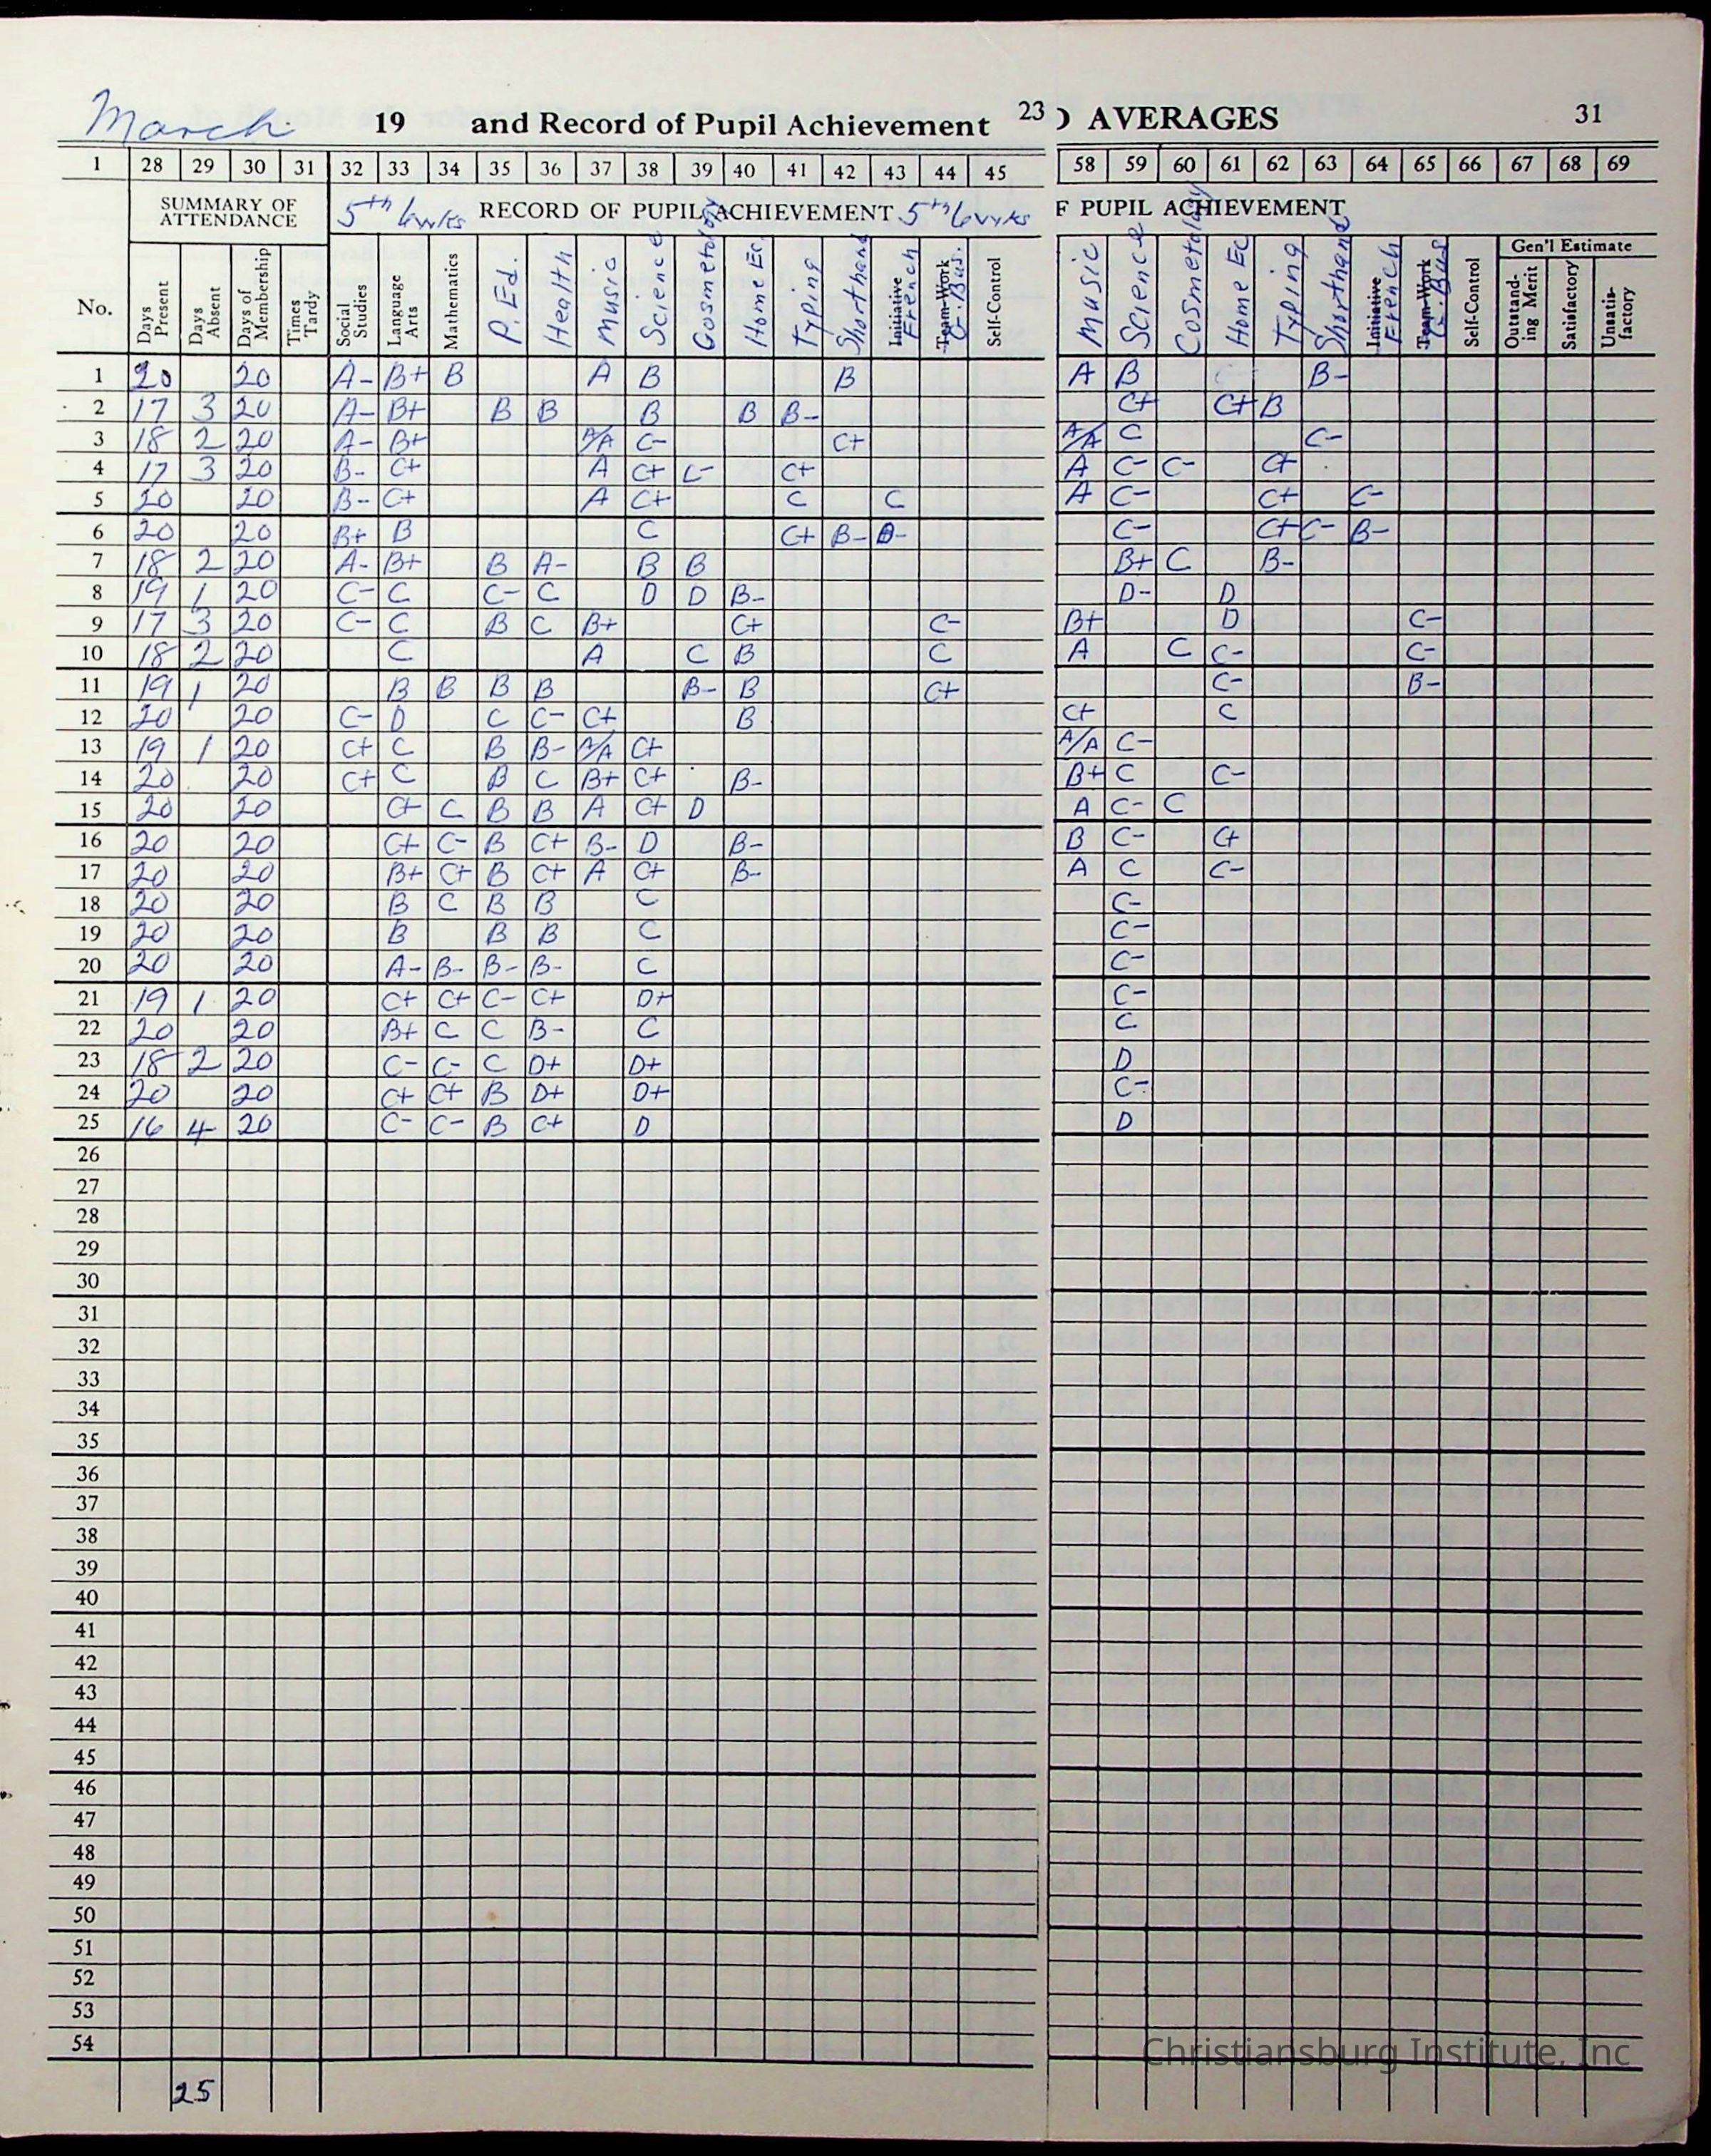 March 19 and Record of Pupil Achievement 23 ) AVERAGES 31
1 28 29 30 31 32 33 34 35 36 37 38 39 40 41 42 43 44 45 58 59 60 61 62 63 64 65 66 67 68 69
SUMMARY OF ATTENDANCE 5th 6 wks RECORD OF PUPIL ACHIEVEMENT 5th 6 wks F PUPIL ACHIEVEMENT
Gen'l Estimate
No. Days Present Days Absent Days of Membership Times Tardy Social Studies Language Arts Mathematics P. Ed. Health Music Science Cosmetology Home Ec. Typing Shorthand Initiative French Team-Work G. Bus. Self-Control Music Science Cosmetology Home Ec Typing Shorthand Initiative French Team-Work G. Bus Self-Control Outstand-ing Merit Satisfactory Unsatis-factory
1 20 20 A- B+ B A B B A B B-
2 17 3 20 A- B+ B B B B B- C+ C+ B
3 18 2 20 A- B+ A/A C- C+ A/A C C-
4 17 3 20 B- C+ A C+ C- C+ A C- C- C+
5 20 20 B- C+ A C+ C C A C- C+ C-
6 20 20 B+ B C C+ B- B- C- C+ C- B-
7 18 2 20 A- B+ B A- B B B+ C B-
8 19 1 20 C- C C- C D D B- D- D
9 17 3 20 C- C B C B+ C+ C- B+ D C-
10 18 2 20 C A C B C A C C- C-
11 19 1 20 B B B B B- B C+ C- B-
12 20 20 C- D C C- C+ B C+ C
13 19 1 20 C+ C B B- A/A C+ A/A C-
14 20 20 C+ C B C B+ C+ B- B+ C C-
15 20 20 C+ C B B A C+ D A C- C
16 20 20 C+ C- B C+ B- D B- B C- C+
17 20 20 B+ C+ B C+ A C+ B- A C C-
18 20 20 B C B B C C-
19 20 20 B B B C C-
20 20 20 A- B- B- B- C C-
21 19 1 20 C+ C+ C- C+ D+ C-
22 20 20 B+ C C B- C C
23 18 2 20 C- C- C D+ D+ D
24 20 20 C+ C+ B D+ D+ C-
25 16 4 20 C- C- B C+ D D
26
27
28
29
30
31
32
33
34
35
36
37
38
39
40
41
42
43
44
45
46
47
48
49
50
51
52
53
54
25
Christiansburg Institute, Inc